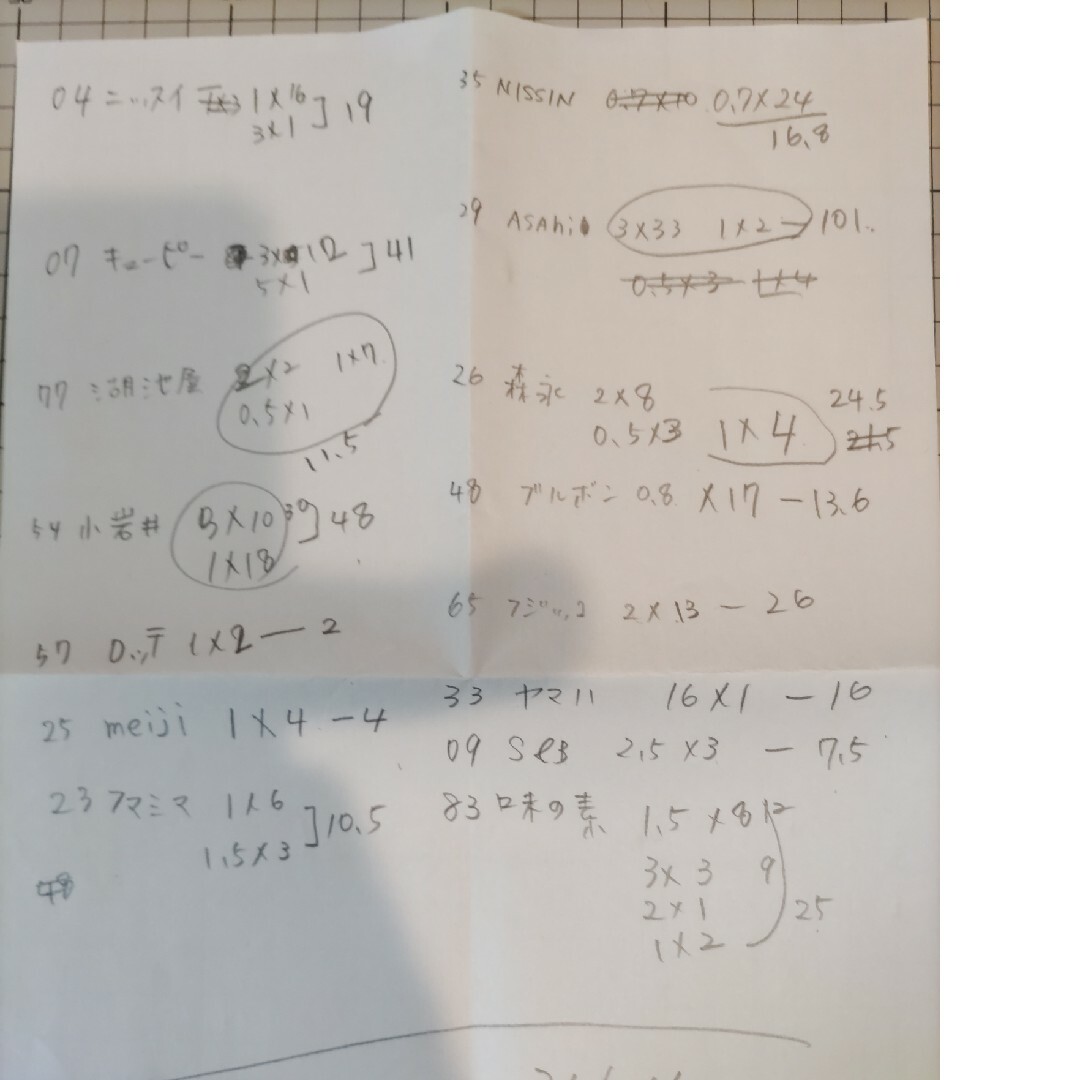 04 ニッスイ 1×16 ] 19
3×1
07 キューピー 3×12 ] 41
5×1
77 湖池屋 2×2 1×7
0.5×1
11.5
54 小岩井 3×10 30 ] 48
1×18
57 ロッテ 1×2 — 2
25 meiji 1×4 — 4
23 フマミマ 1×6 ] 10.5
1.5×3
48
35 NISSIN 0.7×10 0.7×24
16.8
29 ASAhi 3×33 1×2 — 101
0.5×3 1×4
26 森永 2×8 24.5
0.5×3 1×4 21.5
48 ブルボン 0.8 ×17 — 13.6
65 フジッコ 2×13 — 26
33 ヤマハ 16×1 — 16
09 S&B 2.5×3 — 7.5
83 味の素 1.5×8 12
3×3 9
2×1 25
1×2